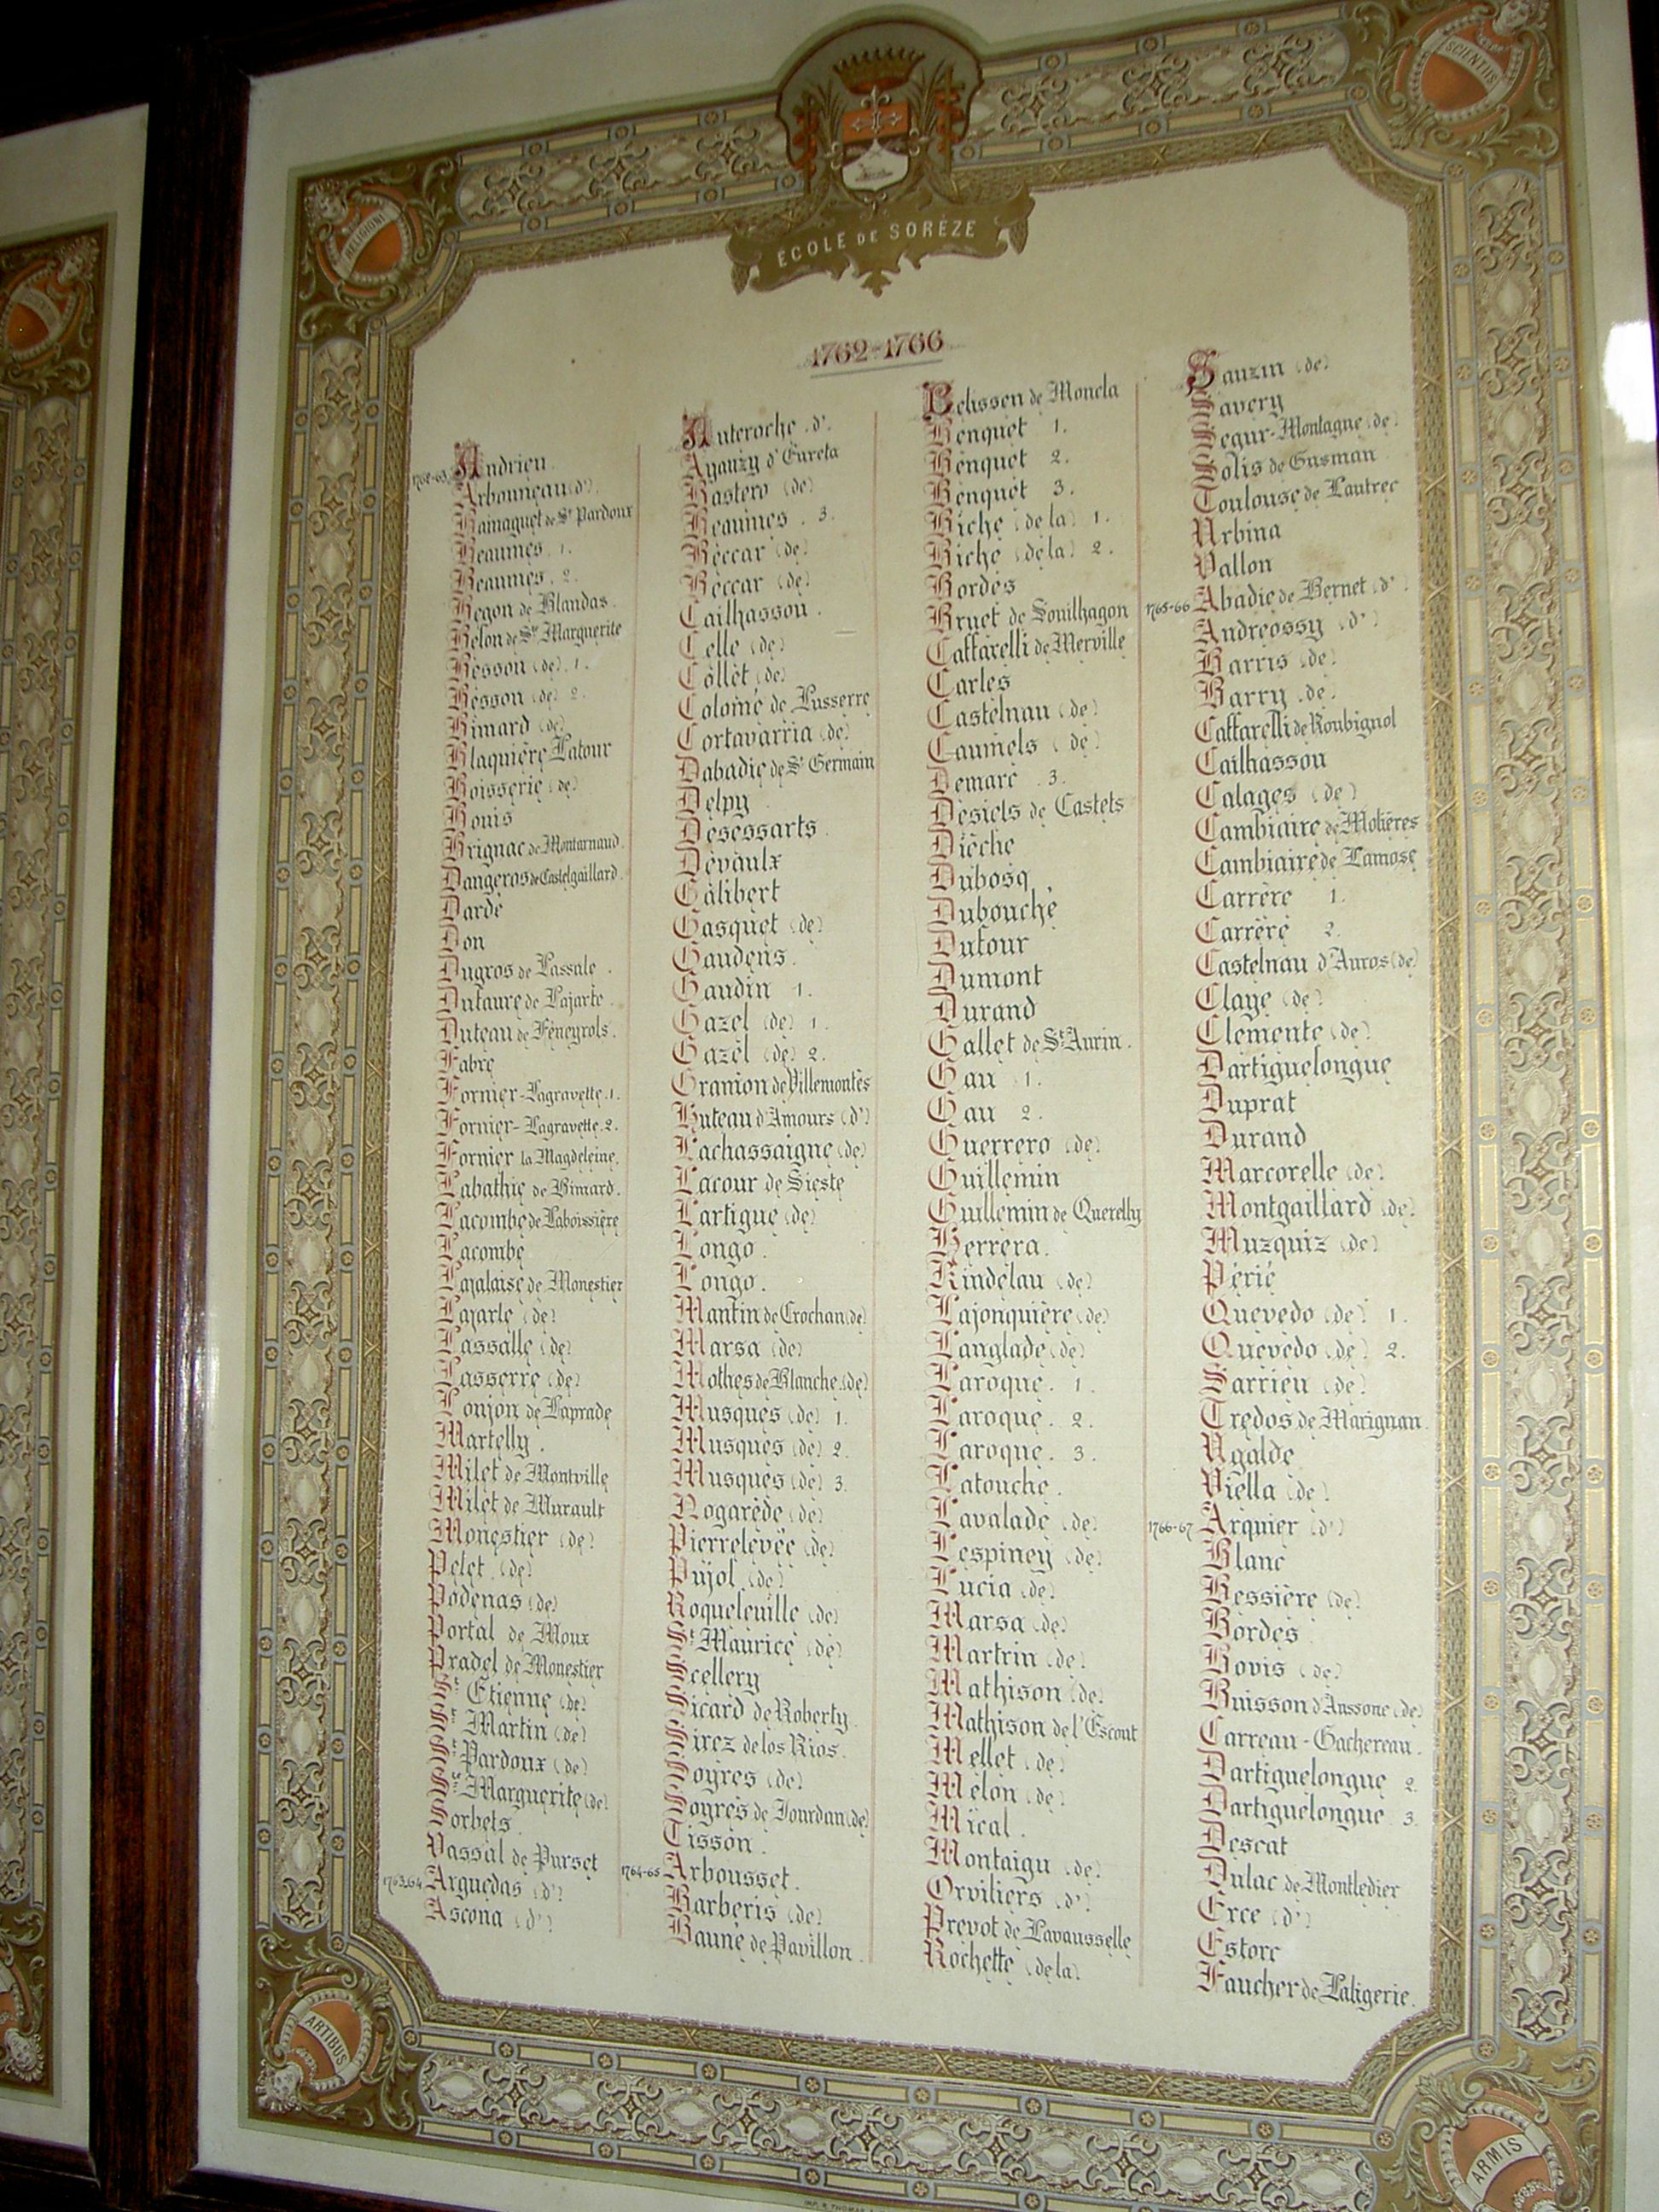 SCIENTIIS
RELIGIONI
ÉCOLE DE SORÈZE
1762-1766
1762-63 Andrieu
Arbouneau (d')
Ramaguet de St Pardoux
Beaumes. 1.
Beaumes. 2.
Begon de Blandas.
Belon de Ste Marguerite
Besson (de) 1.
Besson (de) 2.
Bimard (de)
Blaquière Latour
Boisserie (de)
Bouis
Brignac de Montarnaud.
Dangeros de Castelgaillard.
Dardé
Don
Dugros de Lassale.
Dufaure de Lajarte.
Duteau de Féneyrols.
Fabre
Fornier-Lagravette. 1.
Fornier-Lagravette. 2.
Fornier la Magdeleine.
Labathie de Bimard.
Lacombe de Laboissière
Lacombe
Lajalaise de Monestier
Lajarle (de)
Lassalle (de)
Lasserre (de)
Loujon de Laprade
Martelly.
Milet de Montville
Milet de Murault
Monestier (de)
Pelet (de)
Podenas (de)
Portal de Moux
Pradel de Monestier
St Étienne (de)
St Martin (de)
St Pardoux (de)
Ste Marguerite (de)
Sorbets.
Vassal de Purset
1763-64 Arguedas (d')
Ascona (d')
Auteroche. d'.
Ayauzy d'Eureta
Bastero (de)
Beaumes. 3.
Beccar (de)
Beccar (de)
Cailhassou.
Celle (de)
Collet (de)
Colomé de Lusserre
Cortavarria (de)
Dabadie de St Germain
Delpy
Desessarts.
Devaulx
Galibert
Gasquet (de)
Gaudens.
Gaudin 1.
Gazel (de) 1.
Gazel (de) 2.
Granion de Villemontès
Huteau d'Amours (d')
Lachassaigne (de)
Lacour de Sieste
Lartigue (de)
Longo.
Longo.
Mantin de Crochan (de)
Marsa (de)
Mothes de Blanche (de)
Musques (de) 1.
Musques (de) 2.
Musques (de) 3.
Nogarède (de)
Pierrelevée (de)
Pujol (de)
Roquefeuille (de)
St Maurice (de)
Scellery
Sicard de Roberty.
Sirez de los Rios.
Soyres (de)
Soyres de Jourdan (de)
Tisson.
1764-65 Arbousset.
Barberis (de)
Baune de Pavillon.
Belissen de Moncla
Benquet 1.
Benquet 2.
Benquet 3.
Biche (de la) 1.
Biche (de la) 2.
Bordes
Bruet de Souilhagon
Caffarelli de Merville
Carles
Castelnau (de)
Caumels (de)
Demaré 3.
Desiels de Castets
Dièche
Dubosq
Dubouché
Dufour
Dumont
Durand
Gallet de St Aurin.
Gau 1.
Gau 2.
Guerrero (de)
Guillemin
Guillemin de Querelly
Herrera.
Kindelau (de)
Lajonquière (de)
Langlade (de)
Laroque. 1.
Laroque. 2.
Laroque. 3.
Latouche.
Lavalade (de)
Lespiney (de)
Lucia (de)
Marsa (de)
Martrin (de)
Mathison (de)
Mathison de l'Escout
Mellet (de)
Melon (de)
Mical.
Montaigu (de)
Orviliers (d')
Prevot de Lavausselle
Rochette (de la)
Sauzin (de)
Savery
Segur-Montagne (de)
Solis de Gusman
Toulouse de Lautrec
Urbina
Vallon
1765-66 Abadie de Bernet (d')
Andreossy (d')
Barris (de)
Barry (de)
Caffarelli de Roubignol
Cailhassou
Calages (de)
Cambiaire de Molières
Cambiaire de Lamose
Carrère 1.
Carrère 2.
Castelnau d'Auros (de)
Claye (de)
Clemente (de)
Dartiguelongue
Duprat
Durand
Marcorelle (de)
Montgaillard (de)
Muzquiz (de)
Périé
Quevedo (de) 1.
Quevedo (de) 2.
Sarrieu (de)
Tredos de Marignan.
Ugalde
Viella (de)
1766-67 Arquier (d')
Blanc
Bessière (de)
Bordes
Bovis (de)
Buisson d'Aussone (de)
Carreau-Gachereau.
Dartiguelongue 2.
Dartiguelongue 3.
Descat
Dulac de Montledier
Erce (d')
Estorc
Faucher de Laligerie.
ARTIBUS
ARMIS